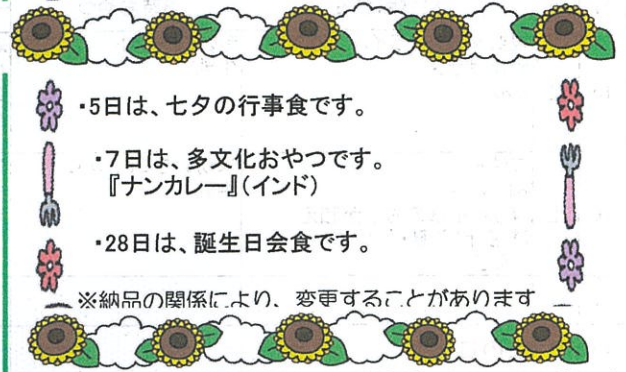 ・5日は、七夕の行事食です。
・7日は、多文化おやつです。
『ナンカレー』(インド)
・28日は、誕生日会食です。
※納品の関係により、変更することがあります